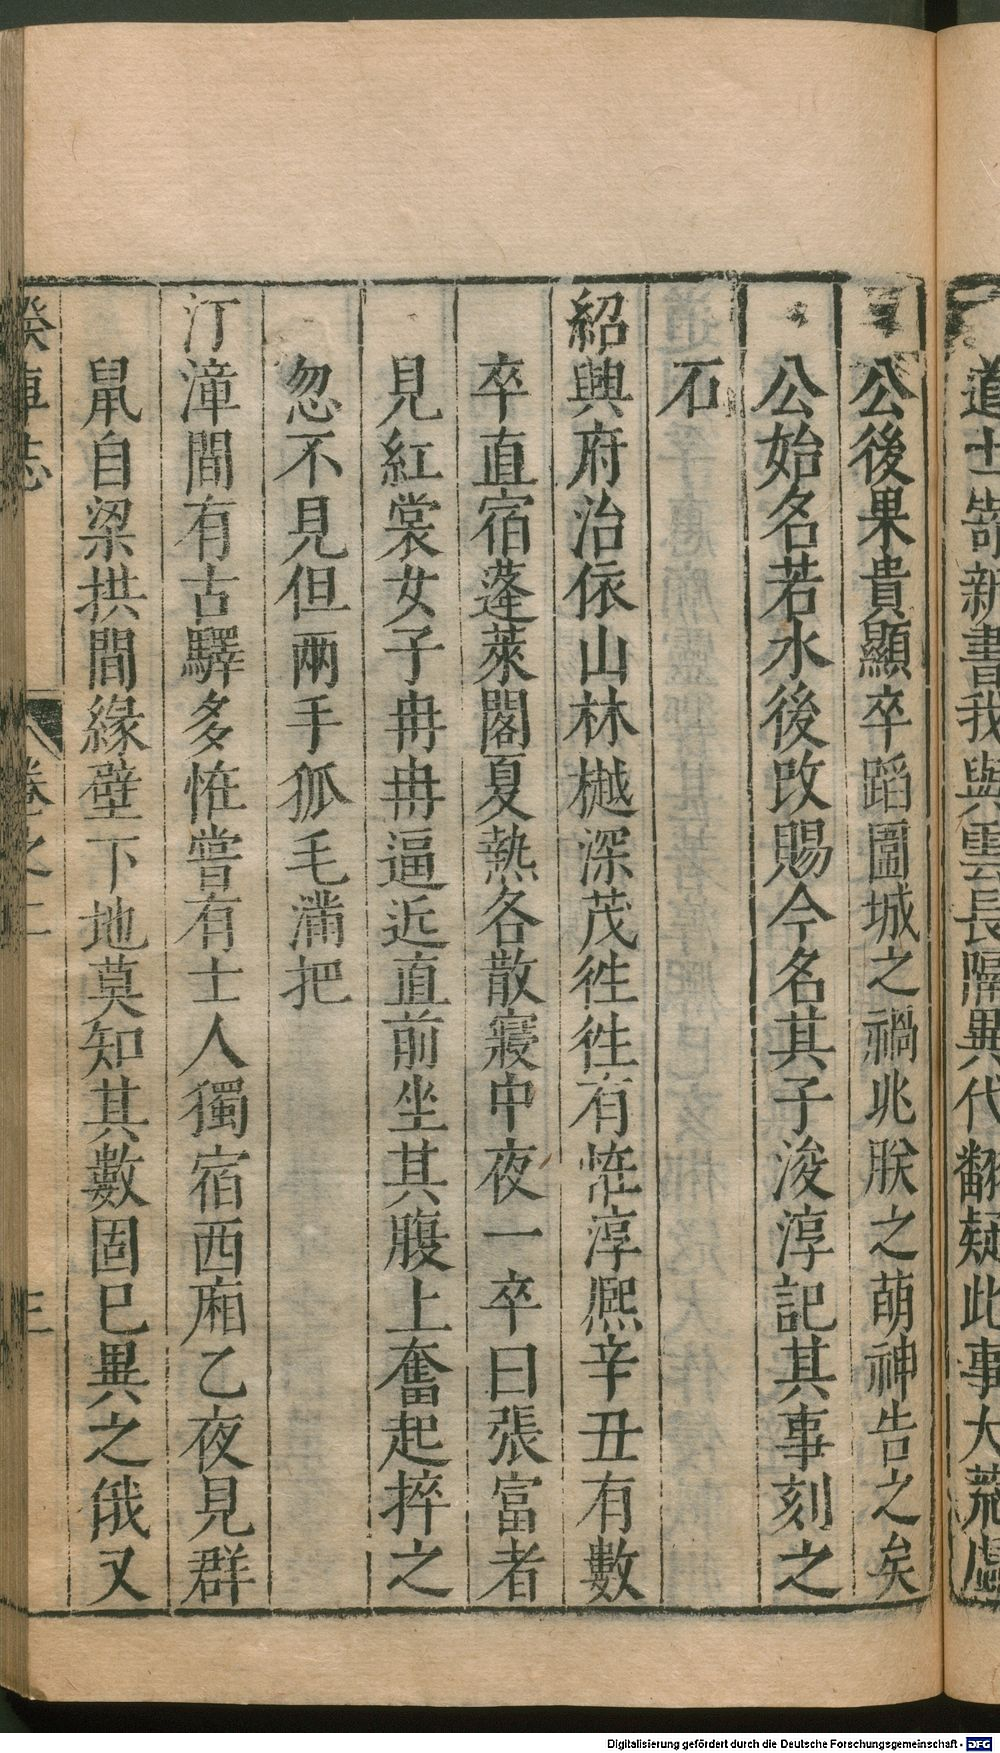 道士嵜新書我與雲長隔異代翻疑此事大荒虛
公後果貴顯卒蹈圊城之禍兆朕之萌神告之矣
公始名若水後改賜今名其子浚淳記其事刻之
石
紹興府治依山林樾深茂徃徃有恠淳熈辛丑有數
卒直宿蓬萊閣夏熱各散寢中夜一卒曰張富者
見紅裳女子冉冉逼近直前坐其腹上奮起捽之
忽不見但兩手狐毛滿把
汀漳間有古驛多恠嘗有士人獨宿西廂乙夜見群
鼠自梁拱間緣壁下地莫知其數固已異之俄又
睽車志 卷之二 三
Digitalisierung gefördert durch die Deutsche Forschungsgemeinschaft - DFG